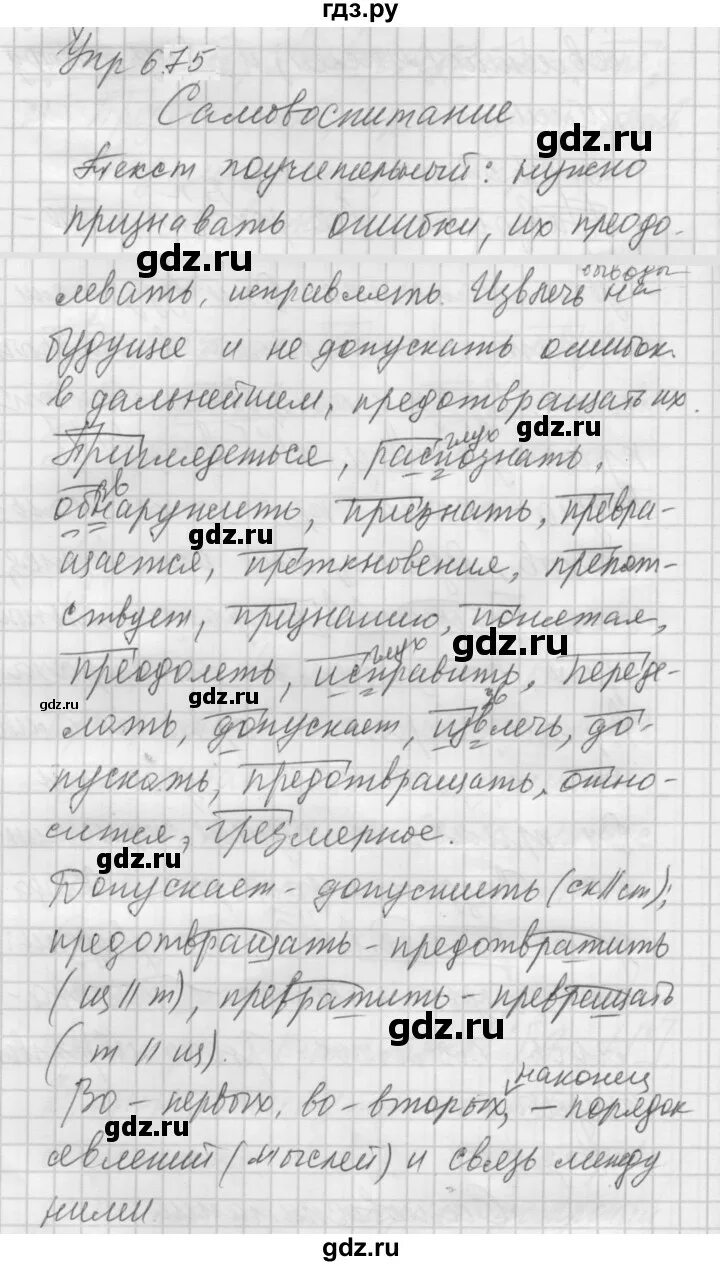 гдз.ру
Упр 675
Самовоспитание
gdz.ru
Текст поучительный: нужно
признавать ошибки, их преодо-
gdz.ru
выводы
левать, исправлять. Извлечь на
будущее и не допускать ошибок
в дальнейшем, предотвращать их.
gdz.ru
глух
Приглядеться, распознать,
зв
обнаружить, признать, превра-
gdz.ru
щается, преткновения, препят-
ствует, признанию, понятая,
gdz.ru
глух
преодолеть, исправить, переде-
gdz.ru
gdz.ru
зв
лать, допускает, извлечь, до-
пускать, предотвращать, отно-
сится, чрезмерное.
gdz.ru
gdz.ru
Допускает - допустить (ск//ст);
предотвращать - предотвратить
(щ // т), превратить - превращать
gdz.ru
(т // щ).
наконец
Во - первых, во - вторых, - порядок
gdz.ru
явлений (мыслей) и связь между
ними.
gdz.ru